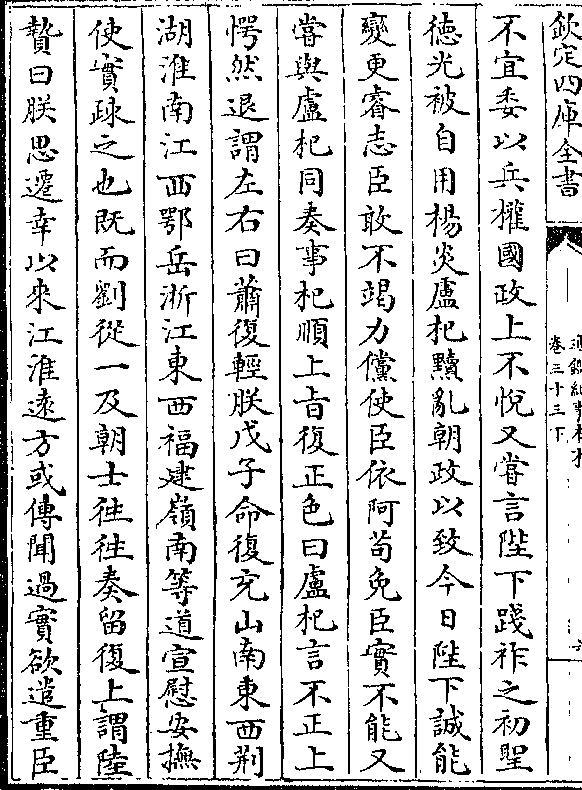 欽定四庫全書
卷三十三下
不宜委以兵權國政上不悅又嘗言陛下踐祚之初聖
徳光被自用楊炎盧𣏌黷亂朝政以致今日陛下誠能
變更睿志臣敢不竭力儻使臣依阿茍免臣實不能又
嘗與盧𣏌同奏事𣏌順上㫖復正色曰盧𣏌言不正上
愕然退謂左右曰蕭復輕朕戊子命復充山南東西荆
湖淮南江西鄂岳浙江東西福建嶺南等道宣慰安撫
使實疎之也既而劉從一及朝士徃徃奏留復上謂陸
贄曰朕思遷幸以來江淮逺方或傳聞過實欲遣重臣